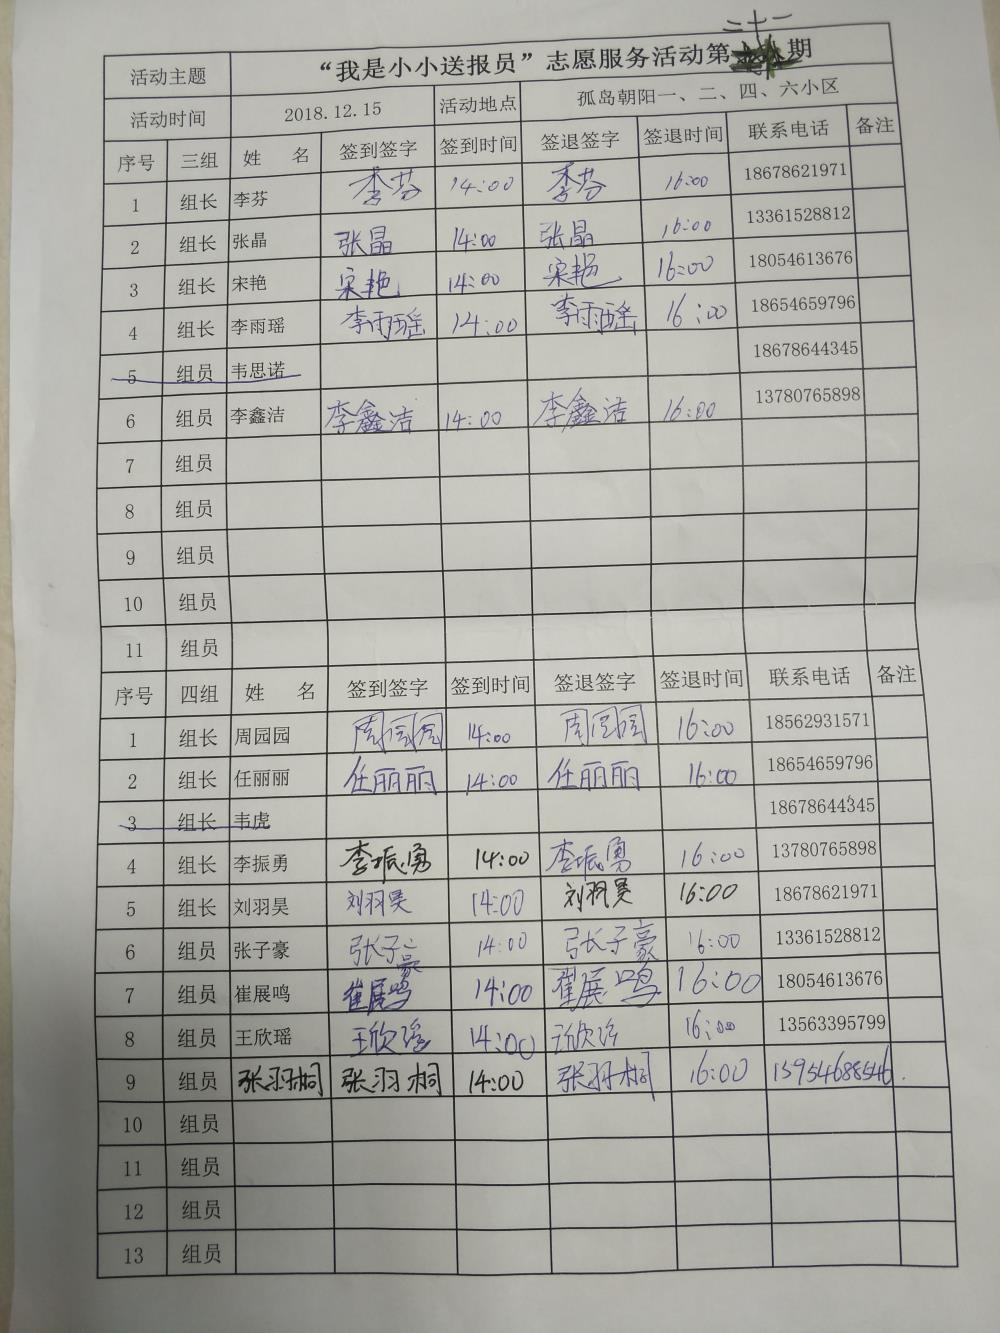 二十一
活动主题 “我是小小送报员”志愿服务活动第 期
活动时间 2018.12.15 活动地点 孤岛朝阳一、二、四、六小区
序号 三组 姓 名 签到签字 签到时间 签退签字 签退时间 联系电话 备注
1 组长 李芬 李芬 14:00 李芬 16:00 18678621971
2 组长 张晶 张晶 14:00 张晶 16:00 13361528812
3 组长 宋艳 宋艳 14:00 宋艳 16:00 18054613676
4 组长 李雨瑶 李雨瑶 14:00 李雨瑶 16:00 18654659796
5 组员 韦思诺 18678644345
6 组员 李鑫洁 李鑫洁 14:00 李鑫洁 16:00 13780765898
7 组员
8 组员
9 组员
10 组员
11 组员
序号 四组 姓 名 签到签字 签到时间 签退签字 签退时间 联系电话 备注
1 组长 周园园 周园园 14:00 周园园 16:00 18562931571
2 组长 任丽丽 任丽丽 14:00 任丽丽 16:00 18654659796
3 组长 韦虎 18678644345
4 组长 李振勇 李振勇 14:00 李振勇 16:00 13780765898
5 组长 刘羽昊 刘羽昊 14:00 刘羽昊 16:00 18678621971
6 组员 张子豪 张子豪 14:00 张子豪 16:00 13361528812
7 组员 崔展鸣 崔展鸣 14:00 崔展鸣 16:00 18054613676
8 组员 王欣瑶 王欣瑶 14:00 王欣瑶 16:00 13563395799
9 组员 张羽桐 张羽桐 14:00 张羽桐 16:00 15954688546
10 组员
11 组员
12 组员
13 组员